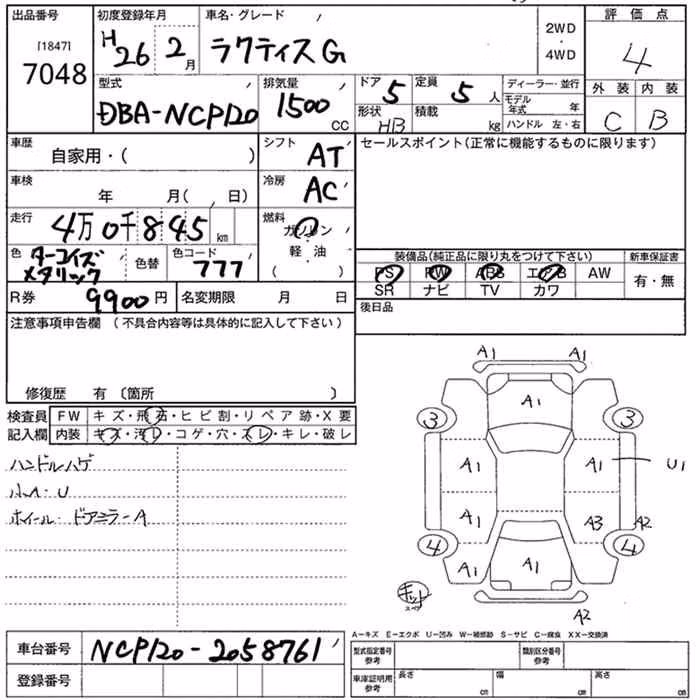 出品番号 初度登録年月 車名・グレード 評価点
[1847]
7048 H 26 2月 ラクティスG 2WD・4WD 4
型式 排気量 ドア 定員 ディーラー・並行 外装 内装
DBA-NCP120 1500 CC 5 5 人 モデル年式 年 C B
形状 HB 積載 kg ハンドル 左・右
車歴 自家用・( ) シフト AT セールスポイント(正常に機能するものに限ります)
車検 年 月( 、 日) 冷房 AC
走行 4万0千845 km 燃料 ガソリン
軽・油
( )
色 ターコイズメタリック 色替 色コード 777 装備品(純正品に限り丸をつけて下さい) 新車保証書
PS PW ABS エアB AW 有・無
R券 9900円 名変期限 月 日 SR ナビ TV カワ
注意事項申告欄 (不具合内容等は具体的に記入して下さい) 後日品
修復歴 有 〔箇所 〕
検査員 FW キズ・飛石・ヒビ割・リペア跡・X要
記入欄 内装 キズ・汚レ・コゲ・穴・スレ・キレ・破レ
ハンドルハゲ
小A・U
ホイール・ドアミラーA
A1 A1
A1
3 3
A1 A1 U1
A1 A3 A2
4 4
A1 A1
キット
スペア
A2
A-キズ E-エクボ U-凹み W-補修跡 S-サビ C-腐食 XX-交換済
車台番号 NCP120-2058761 型式指定番号 参考 類別区分番号 参考
登録番号 車庫証明用 参考 長さ cm 幅 cm 高さ cm